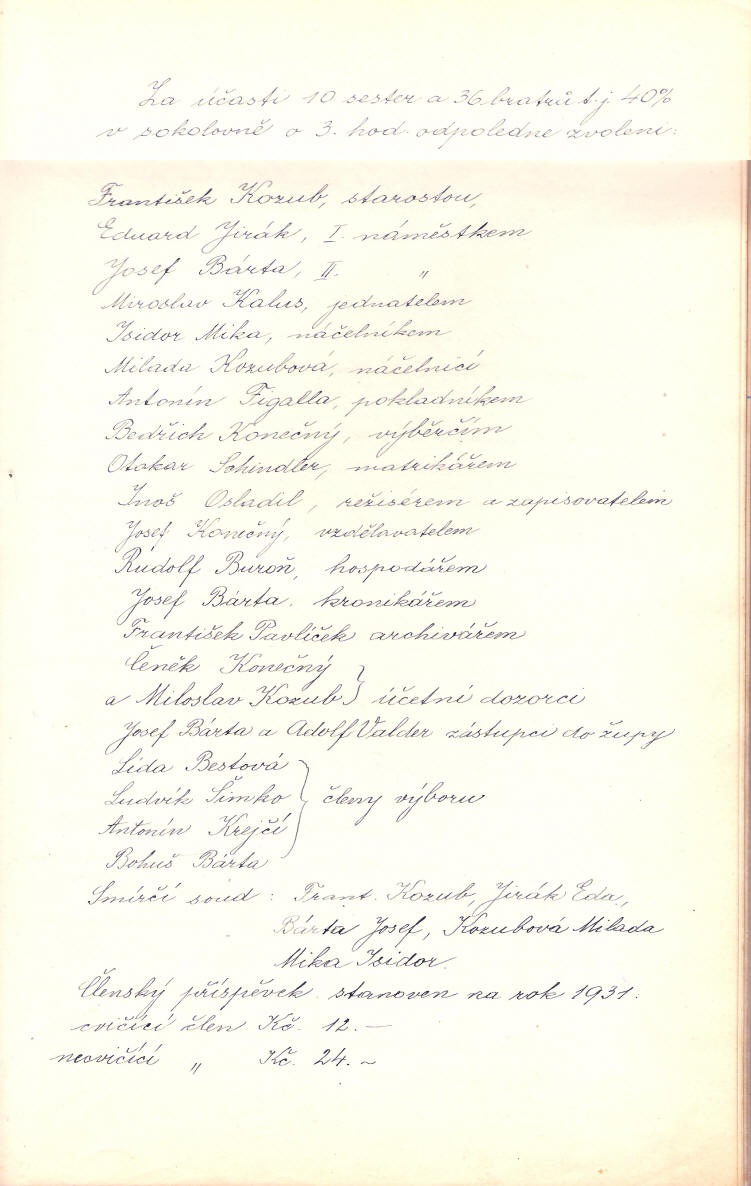 Za účasti 10 sester a 36 bratrů t.j. 40%
v sokolovně o 3. hod. odpoledne zvoleni:
František Kozub, starostou,
Eduard Jirák, I. náměstkem
Josef Bárta, II. "
Miroslav Kalus, jednatelem
Isidor Mika, náčelníkem
Milada Kozubová, náčelnicí
Antonín Figalla, pokladníkem
Bedřich Konečný, výběrčím
Otakar Schindler, matrikářem
Inoš Osladil, režisérem a zapisovatelem
Josef Konečný, vzdělavatelem
Rudolf Buroň, hospodářem
Josef Bárta, kronikářem
František Pavlíček archivářem
Čeněk Konečný
a Miloslav Kozub } účetní dozorci
Josef Bárta a Adolf Valder zástupci do župy
Lída Bestová
Ludvík Šimko } členy výboru
Antonín Krejčí
Bohuš Bárta
Smírčí soud : Frant. Kozub, Jirák Eda.,
Bárta Josef, Kozubová Milada
Mika Isidor.
Členský příspěvek stanoven na rok 1931:
cvičící člen Kč. 12.—
necvičící " Kč. 24.~